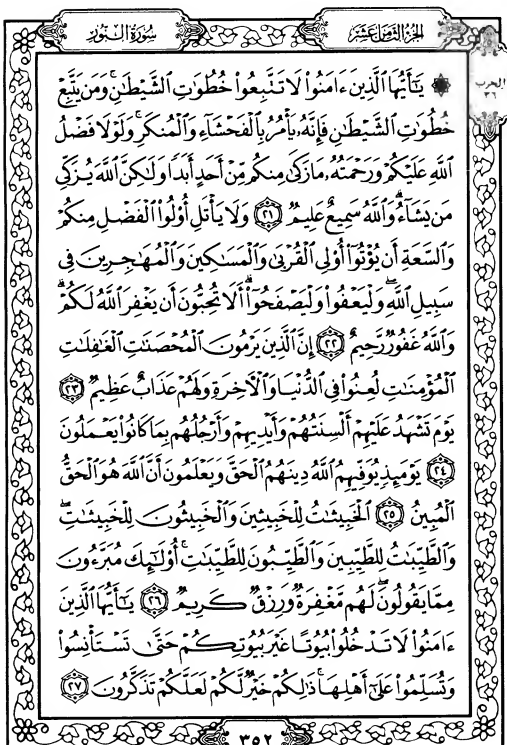 سُورَةُ النُّورِ
الجُزْءُ الثَّامِنَ عَشَرَ
الحزب
٣٦
۞ يَٰٓأَيُّهَا ٱلَّذِينَ ءَامَنُوا۟ لَا تَتَّبِعُوا۟ خُطُوَٰتِ ٱلشَّيْطَٰنِ ۚ وَمَن يَتَّبِعْ
خُطُوَٰتِ ٱلشَّيْطَٰنِ فَإِنَّهُۥ يَأْمُرُ بِٱلْفَحْشَآءِ وَٱلْمُنكَرِ ۚ وَلَوْلَا فَضْلُ
ٱللَّهِ عَلَيْكُمْ وَرَحْمَتُهُۥ مَا زَكَىٰ مِنكُم مِّنْ أَحَدٍ أَبَدًا وَلَٰكِنَّ ٱللَّهَ يُزَكِّى
مَن يَشَآءُ ۗ وَٱللَّهُ سَمِيعٌ عَلِيمٌ ٢١ وَلَا يَأْتَلِ أُو۟لُوا۟ ٱلْفَضْلِ مِنكُمْ
وَٱلسَّعَةِ أَن يُؤْتُوٓا۟ أُو۟لِى ٱلْقُرْبَىٰ وَٱلْمَسَٰكِينَ وَٱلْمُهَٰجِرِينَ فِى
سَبِيلِ ٱللَّهِ ۖ وَلْيَعْفُوا۟ وَلْيَصْفَحُوٓا۟ ۗ أَلَا تُحِبُّونَ أَن يَغْفِرَ ٱللَّهُ لَكُمْ ۗ
وَٱللَّهُ غَفُورٌ رَّحِيمٌ ٢٢ إِنَّ ٱلَّذِينَ يَرْمُونَ ٱلْمُحْصَنَٰتِ ٱلْغَٰفِلَٰتِ
ٱلْمُؤْمِنَٰتِ لُعِنُوا۟ فِى ٱلدُّنْيَا وَٱلْءَاخِرَةِ وَلَهُمْ عَذَابٌ عَظِيمٌ ٢٣
يَوْمَ تَشْهَدُ عَلَيْهِمْ أَلْسِنَتُهُمْ وَأَيْدِيهِمْ وَأَرْجُلُهُم بِمَا كَانُوا۟ يَعْمَلُونَ
٢٤ يَوْمَئِذٍ يُوَفِّيهِمُ ٱللَّهُ دِينَهُمُ ٱلْحَقَّ وَيَعْلَمُونَ أَنَّ ٱللَّهَ هُوَ ٱلْحَقُّ
ٱلْمُبِينُ ٢٥ ٱلْخَبِيثَٰتُ لِلْخَبِيثِينَ وَٱلْخَبِيثُونَ لِلْخَبِيثَٰتِ ۖ
وَٱلطَّيِّبَٰتُ لِلطَّيِّبِينَ وَٱلطَّيِّبُونَ لِلطَّيِّبَٰتِ ۚ أُو۟لَٰٓئِكَ مُبَرَّءُونَ
مِمَّا يَقُولُونَ ۖ لَهُم مَّغْفِرَةٌ وَرِزْقٌ كَرِيمٌ ٢٦ يَٰٓأَيُّهَا ٱلَّذِينَ
ءَامَنُوا۟ لَا تَدْخُلُوا۟ بُيُوتًا غَيْرَ بُيُوتِكُمْ حَتَّىٰ تَسْتَأْنِسُوا۟
وَتُسَلِّمُوا۟ عَلَىٰٓ أَهْلِهَا ۚ ذَٰلِكُمْ خَيْرٌ لَّكُمْ لَعَلَّكُمْ تَذَكَّرُونَ ٢٧
٣٥٢